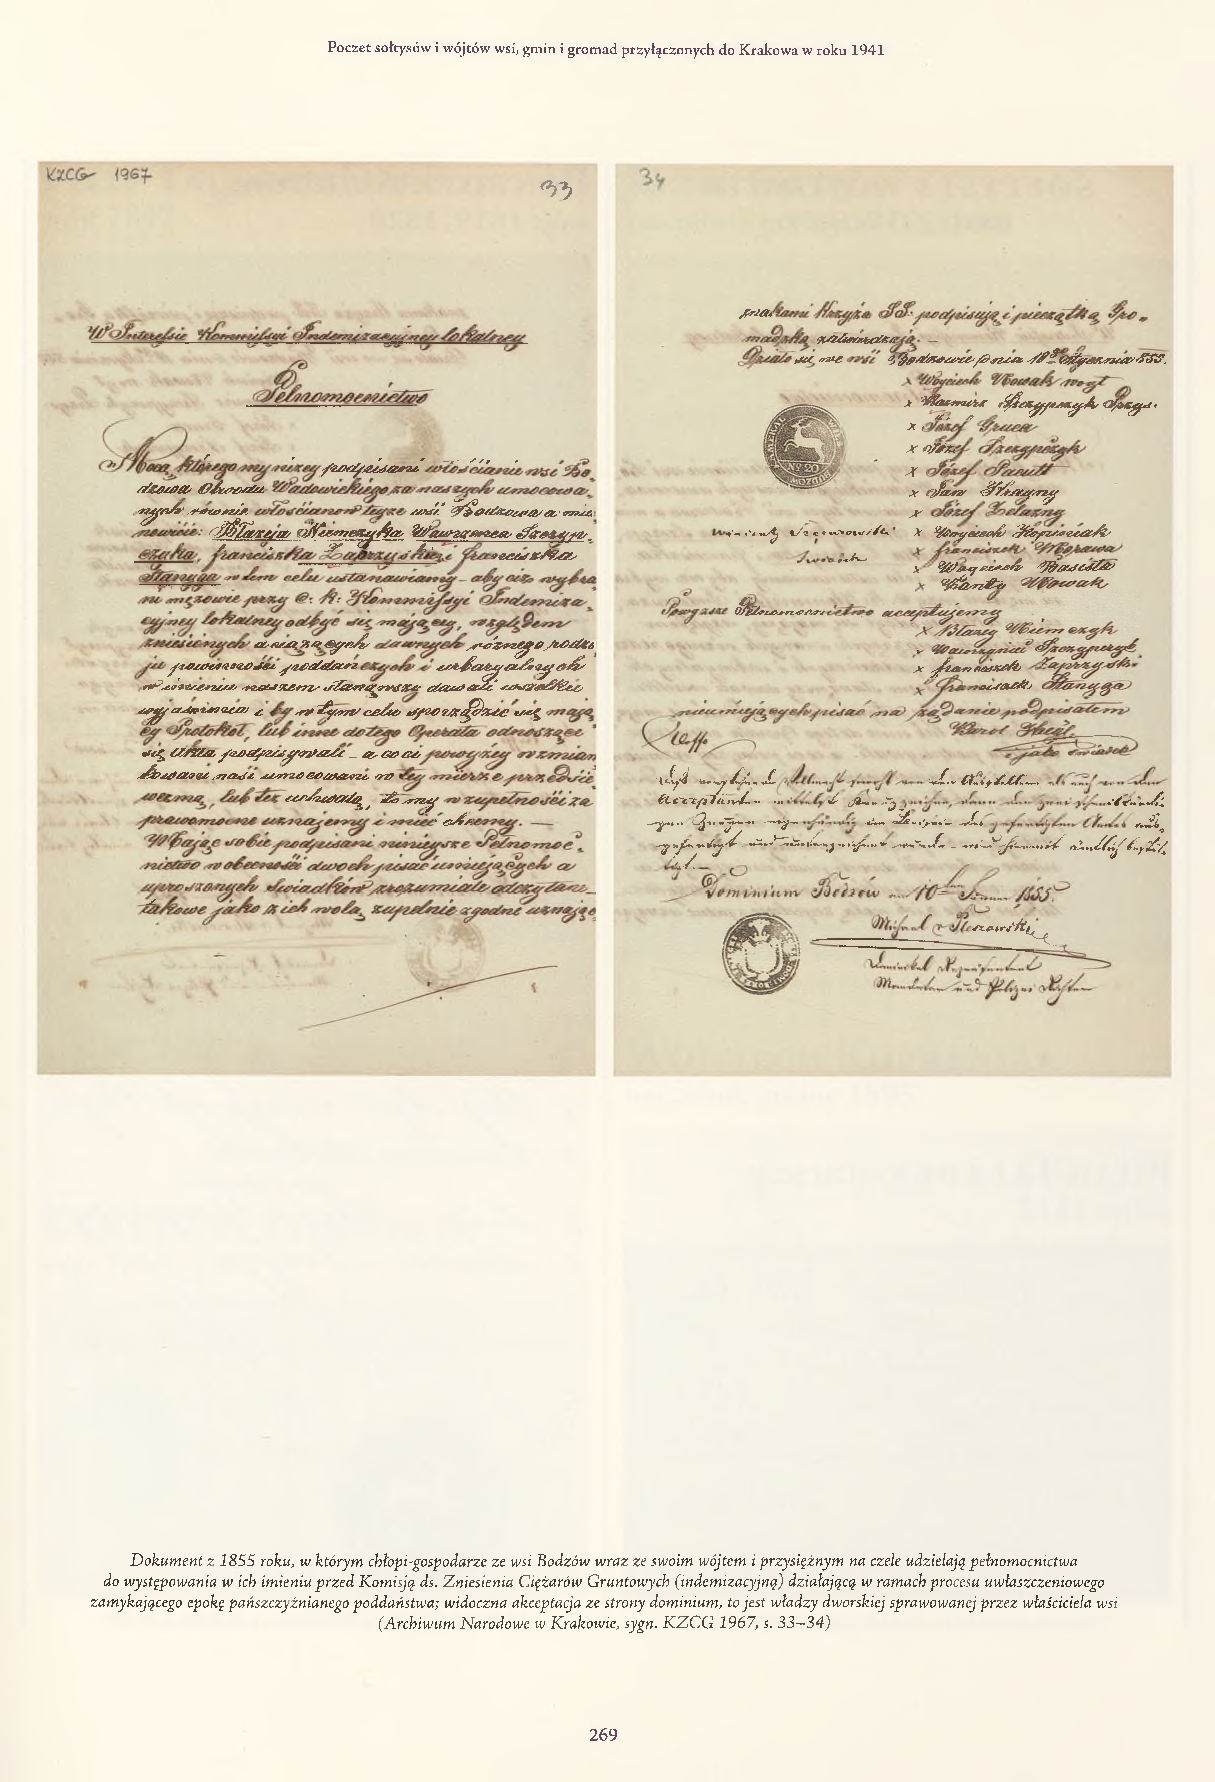 Poczet sołtysów i wójtów wsi, gmin i gromad przyłączonych do Krakowa w roku 1941
KZCG 1967
33
W Interessie Kommissyi Indemizacyjney lokalney
Pełnomocnictwo
Mocą którego my niżey podpisani włościanie wsi Bo-
dzowa Obwodu Wadowickiego za naszych umocowa-
nych równie włościanow teyże wsi Bodzowa a mia-
nowicie: Błażeja Niemczyka Wawrzeńca Szczyp-
czyka, franciszka Zaprzyskiego i franciszka
Stanyga w tem celu ustanawiamy - aby ciż wybra
ni mężowie przy C: K: Kommissyi Indemiza-
cyjney lokalney odbyć się mającey, względem
zniesionych a ciążących dawnych różnego rodza
ju powinności poddańczych i urbaryalnych
w imieniu naszem stanąwszy dawali wszelkie
wyjaśninia i by w tym celu sporządzić się mają
cy Protokoł, lub inne do tego Operata odnoszące
się Akta podpisywali - a co ci powyżey wzmian
kowani naśi umocowani w tey mierze przedsię
wezmą, lub też uchwalą, to my w zupełności za
prawomocne uznajemy i mieć chcemy. —
Mając sobie podpisani ninieysze Pełnomoc-
nictwo w obecności dwoch pisać umiejących a
uproszonych Swiadków zrozumiale odczytane
takowe jako z ich wolą zupełnie zgodne uznając
34
znakami Krzyża SS: podpisują i pieczątką Gro-
madzką zatwierdzają. —
Działo się we wśi Bodzowie dnia 10 Stycznia 855.
x Woyciech Nowak woyt
x Kazmirz Szczypczyk Przys.
x Józef Gruca
x Józef Szczypczyk
x Józef
x Jan
x Józef Żelazny
x Woyciech Kopiniak
x franciszek Morawa
x Woyciech Basista
x Kanty Nowak
No 20
Wincenty
Swiadek
Powyższe Pełnomocnictwo acceptujemy
x Błażey Niemczyk
x Wawrzyniec Szczypczyk
x franciszek Zaprzyski
x franciszek Stanyga
nieumiejących pisać na żądanie podpisałem
Karol
jako świadek
Dominium Bodzów am 10 1855.
Michael
Dokument z 1855 roku, w którym chłopi-gospodarze ze wsi Bodzów wraz ze swoim wójtem i przysiężnym na czele udzielają pełnomocnictwa
do występowania w ich imieniu przed Komisją ds. Zniesienia Ciężarów Gruntowych (indemizacyjną) działającą w ramach procesu uwłaszczeniowego
zamykającego epokę pańszczyźnianego poddaństwa; widoczna akceptacja ze strony dominium, to jest władzy dworskiej sprawowanej przez właściciela wsi
(Archiwum Narodowe w Krakowie, sygn. KZCG 1967, s. 33–34)
269